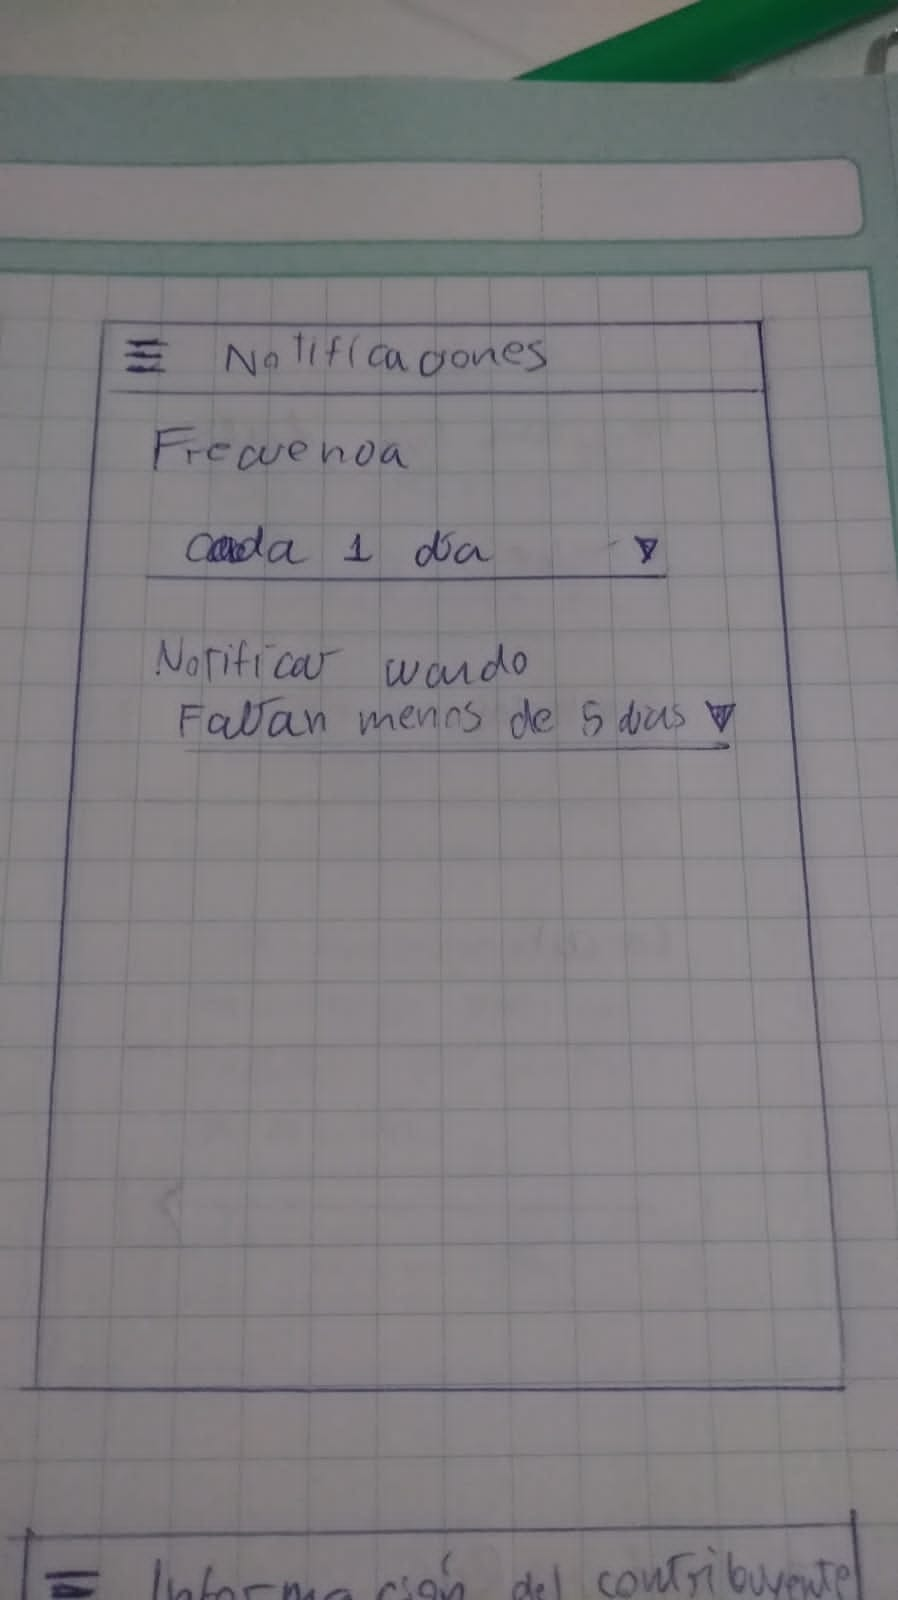 Notificaciones
Frecuencia
Cada 1 día
Notificar cuando
Faltan menos de 5 días
Información del contribuyente